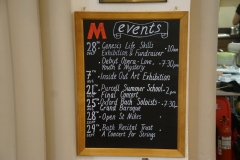 M events
28th • Genesis Life Skills
Exhibition & Fundraiser - 10am
• Debut Opera - Love, - 7-30pm
Youth & Mystery
7th • Inside Out Art Exhibition
21st • Purcell Summer School - 2pm
Final Concert
25th • Oxford Bach Soloists - 7-30
Grand Baroque
28th • Open St Miles
29th • Bath Recital Trust
A Concert for Strings